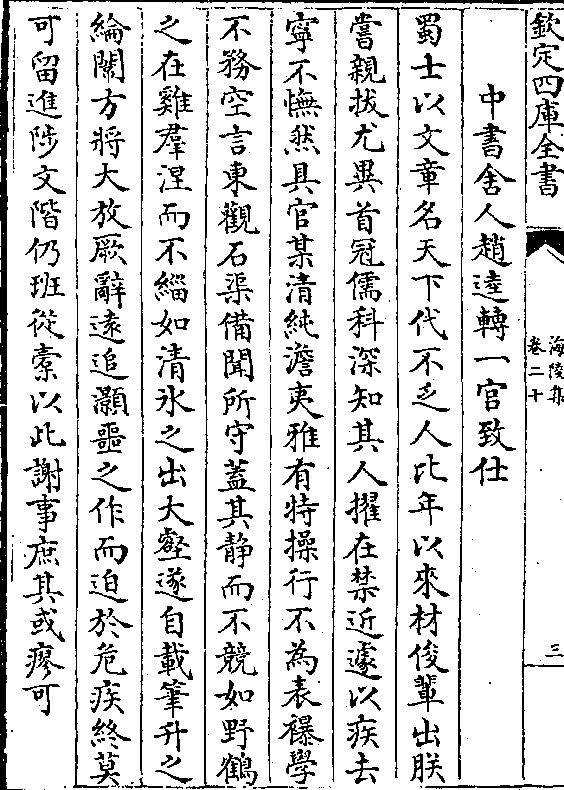 欽定四庫全書
海陵集
卷二十
三
中書舍人趙逵轉一官致仕
蜀士以文章名天下代不乏人比年以來材俊輩出朕
嘗親拔尤異首冠儒科深知其人擢在禁近遽以疾去
寧不憮然具官某清純澹夷雅有特操行不為表襮學
不務空言東觀石渠備聞所守蓋其静而不競如野鶴
之在雞羣涅而不緇如清氷之出大壑遂自載筆升之
綸闈方將大放厥辭遠追灝噩之作而迫於危疾終莫
可留進陟文階仍班從橐以此謝事庶其或瘳可